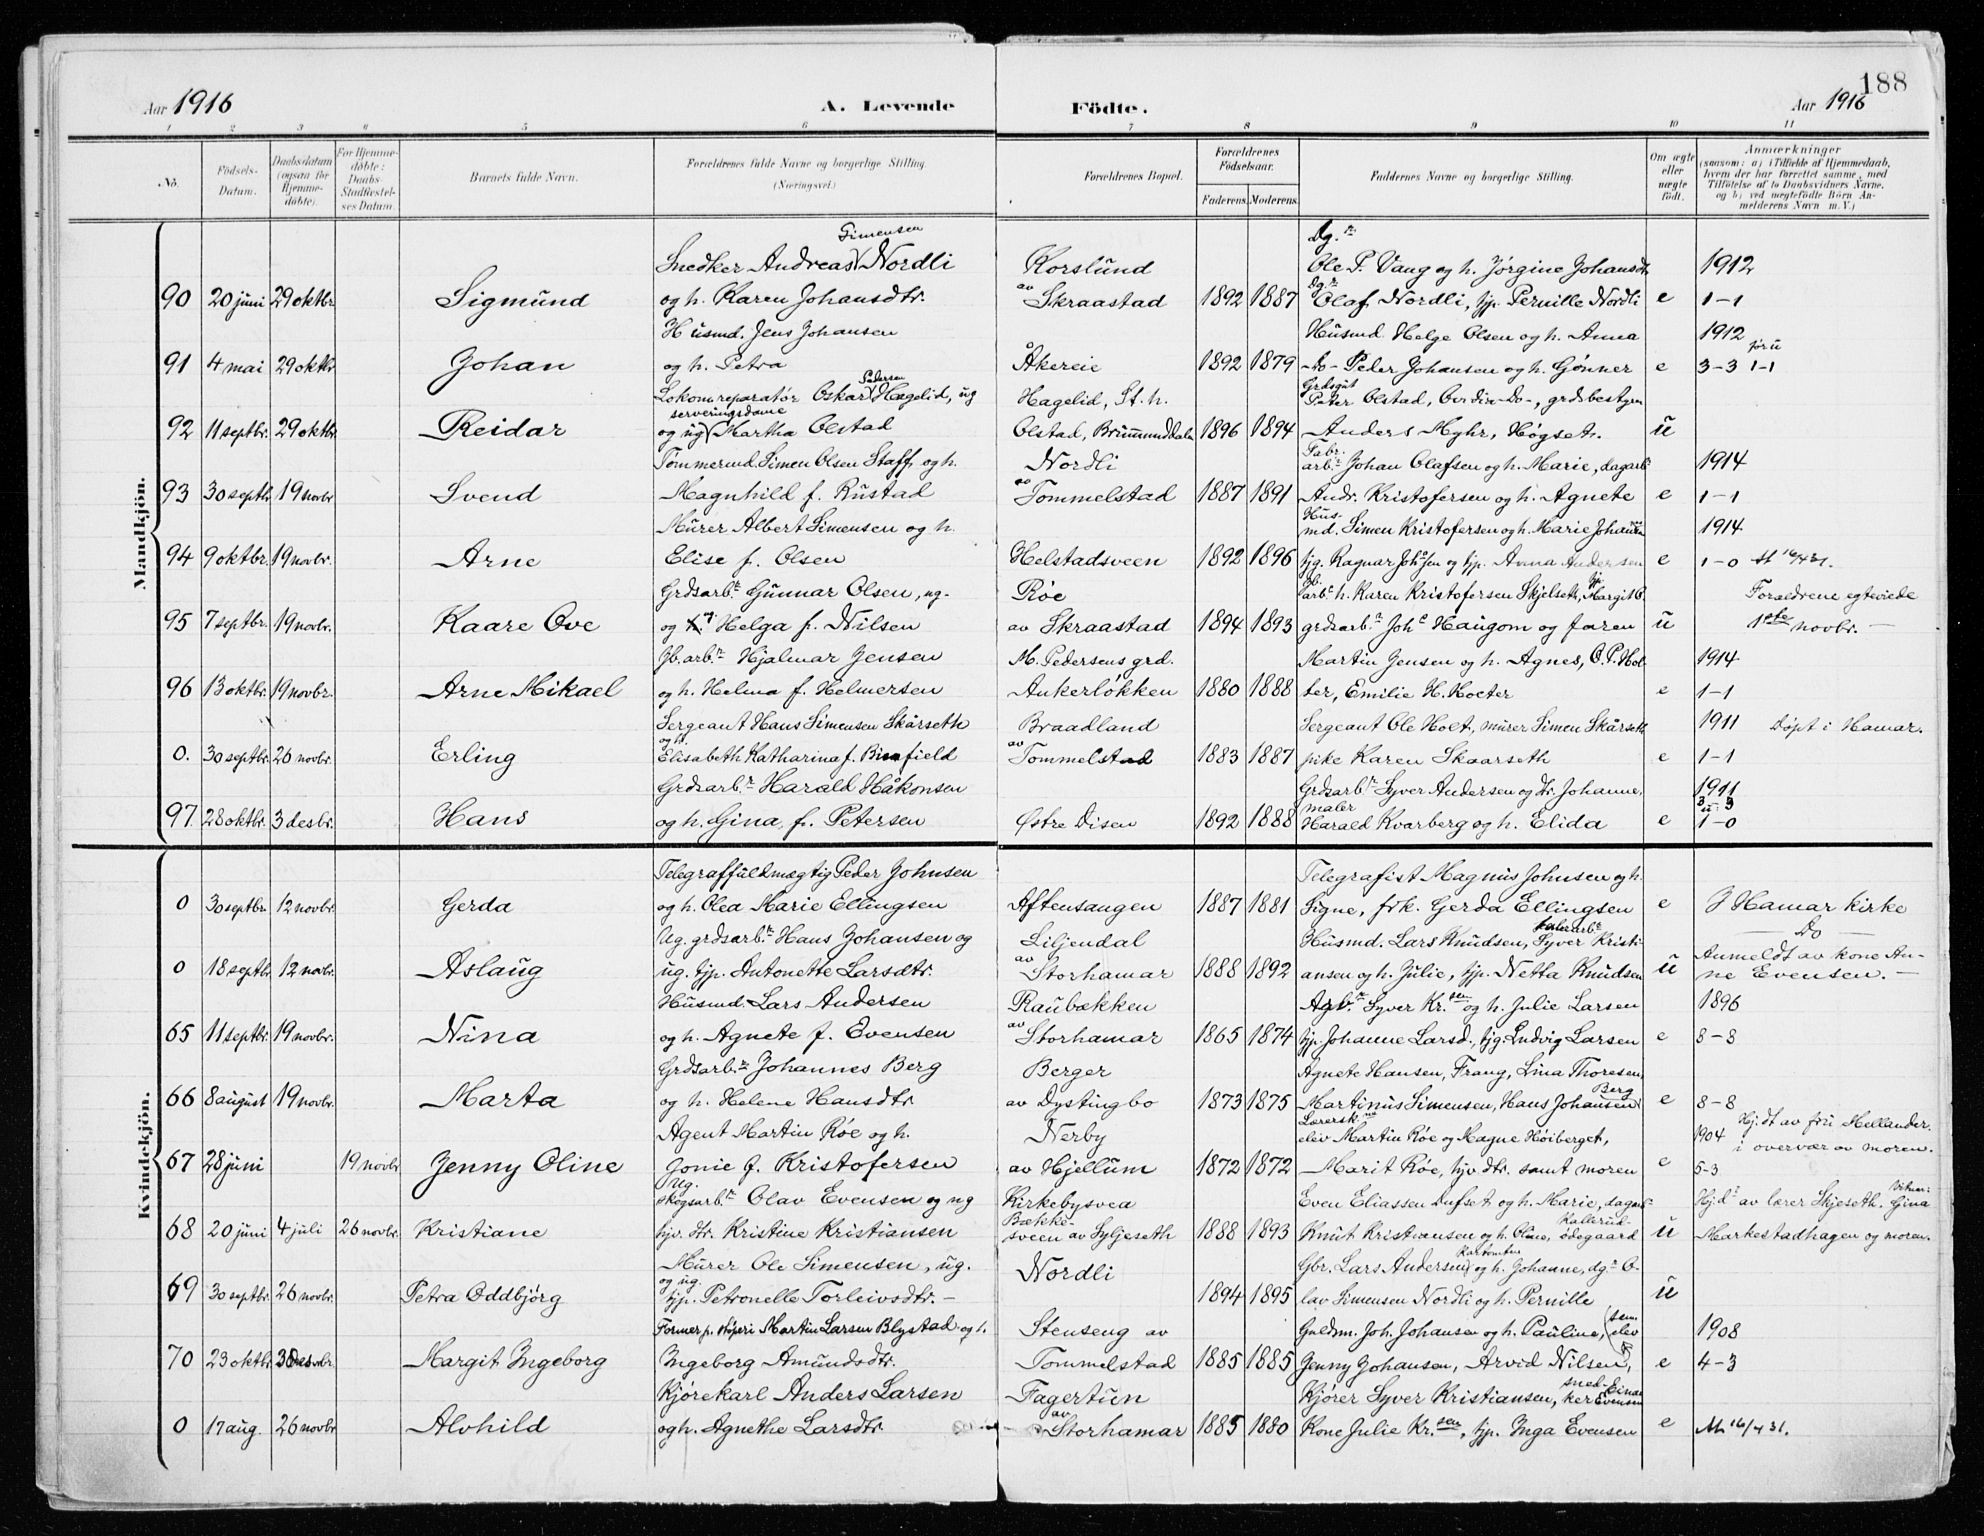 188
Aar 1916 A. Levende Födte. Aar 1916
1 2 3 4 5 6 7 8 9 10 11
No. Födsels-Datum. Daabsdatum (ogsaa for Hjemme-döbte). For Hjemme-döbte: Daabs-Stadfæstel-ses Datum. Barnets fulde Navn. Forældrenes fulde Navne og borgerlige Stilling. (Næringsvei.) Forældrenes Bopæl. Forældrenes Födselsaar. Faderens. Moderens. Faddernes Navne og borgerlige Stilling. Om ægte eller uægte födt. Anmærkninger (saasom: a) i Tilfælde af Hjemmedaab, hvem der har forrettet samme, med Tilföielse af to Daabsvidners Navne, og b) ved uægtefödte Börn An-melderens Navn m. V.)
Mandkjön.
Simensen Dg.r
Snedker Andreas Nordli Korslund Ole P. Vang og h. Jørgine Johansdtr 1912
90 20 juni 29 oktbr. Sigmund og h. Karen Johansdtr. av Skraastad 1892 1887 Dg.r Olaf Nordli, tjp. Pernille Nordli e 1-1
Husmd. Jens Johansen Husmd Helge Olsen og h. Anna 1912
91 4 mai 29 oktbr Johan og h. Petra Åkereie 1892 1879 -Do- Peder Johansen og h. Gønner e 3-3 1-1
Lokomreparatør Oskar Pedersen Hagelid, ug Hagelid, St. h. Peter Olstad, -Do-, grdsbestyrer
92 11 septbr. 29 oktbr. Reidar serveringsdame og ug Martha Olstad Olstad, Brummunddalen 1896 1894 Anders Myhr, Høgset. u
Tømmermd Simen Olsen Staff og h. Nordli Fabr. arb.r Johan Olafsen og h. Marie, dagarb. 1914
93 30 septbr 19 novbr. Svend Magnhild f. Rustad av Tommelstad 1887 1891 Andr. Kristofersen og h. Agnete e 1-1
Murer Albert Simensen og h. Hus-md. Simen Kristofersen og h. Marie Johansen 1914
94 9 oktbr. 19 novbr. Arne Elise f. Olsen Helstadsveen 1892 1896 tjg. Ragnar Johnsen og tjp. Anna Andersen e 1-0 At 16/4 31.
Grdsarb.r Gunnar Olsen, ug- Røe Jb. arb.r h. Karen Kristofersen Skjelseth, tjp. Margit O. Forældrene egteviede
95 7 septbr. 19 novbr. Kaare Ove og ug. Helga f. Nilsen av Skraastad 1894 1893 grdsarb.r Joh.s Haugom og faren u 1ste novbr. -
Jb. arb.r Hjalmar Jensen M. Pedersens grd. Martin Jensen og h. Agnes, O. P. Hol- 1914
96 13 oktbr. 19 novbr. Arne Mikael og h. Helma f. Helmersen Ankerløkken 1880 1888 ter, Emilie H. Holter e 1-1
Sergeant Hans Simensen Skårseth Braadland Sergeant Ole Holt, murer Simen Skårseth 1911 Døpt i Hamar.
0. 30 septbr. 26 novbr. Erling og h. Elisabeth Katharina f. Binfield av Tommelstad 1883 1887 pike Karen Skaarseth e 1-1
Grdsarb.r Harald Håkonsen Grdsarb.r Syver Andersen og dtr. Johanne, 1911
97. 28 oktbr. 3 desbr. Hans og h. Gina, f. Petersen Østre Disen 1892 1888 maler Harald Kvarberg og h. Elida e 3-3 1-0
Kvindekjön.
Telegraffuldmægtig Peder Johnsen Telegrafist Magnus Johnsen og h.
0 30 septbr. 12 novbr. Gerda og h. Olea Marie Ellingsen Aftensangen 1887 1881 Signe, frk. Gerda Ellingsen e I Hamar kirke
Ug. grdsarb.r Hans Johansen og Liljendal Husmd. Lars Knudsen, Syver Kristi- - Do -
0 18 septbr 12 novbr. Aslaug ug. tjp. Antonette Larsdtr. av Storhamar 1888 1892 ansen og h. Julie, tjp. Netta Knudsen u Anmeldt av kone An-ne Evensen. -
Husmd. Lars Andersen Raubækken Agb.r Syver Kr.sen og h. Julie Larsen 1896
65 11 septbr. 19 novbr. Nina og h. Agnete f. Evensen av Storhamar 1865 1874 tjp. Johanne Larsd., tjg. Ludvig Larsen e 8-8
Grdsarb.r Johannes Berg Berger Agnete Hansen, Frang, Lina Thoresen,
66 8 august 19 novbr. Marta og h. Helene Hansdtr av Dystingbo 1873 1875 Martinus Simensen, Hans Johansen Berg e 8-8
Agent Martin Røe og h. Nerby Lærersk. elev Martin Røe og Magne Høiberget, 1904 Hj.dt av fru Mellander.
67 28 juni 19 novbr Jenny Oline Jonie f. Kristofersen av Hjellum 1872 1872 Marit Røe, hjv. dtr. samt moren e 5-3 i overvær av moren.
Ug. skogsarb.r Olav Evensen og ug Kirkebysvea Even Eliassen Dufset og h. Marie, dagarb. Hj.dt av lærer Skjeseth. Vitner: Gina
68 20 juni 4 juli 26 novbr. Kristiane hjv. dtr. Kristine Kristiansen Bække-sveen av Syljeseth 1888 1893 Knut Kristiansen og h. Oline, Kallerud-ødegaard u Markestadhagen og moren.
Murer Ole Simensen, ug. Nordli Gbr. Lars Andersen og h. Johanne, dg.r O-
69 30 septbr. 26 novbr. Petra Oddbjørg og ug. tjp. Petronelle Torleivsdtr. - 1894 1895 lav Simensen Nordli og h. Pernille u
Former p. støperi Martin Larsen Blystad og h. Stenseng av Guldsm. Joh. Johansen og h. Pauline, (sem. elev 1908
70 23 oktbr. 3 desbr. Margit Ingeborg Ingeborg Amundsdtr. Tommelstad 1885 1885 Jenny Johansen, Arvid Nilsen, e 4-3
Kjørekarl Anders Larsen Fagertun Kjører Syver Kristiansen, sned-ker Einar Evensen
0 17 aug. 26 novbr Alvhild og h. Agnethe Larsdtr. av Storhamar 1885 1880 Kone Julie Kr.sen, tjp. Inga Evensen e At 16/4 31.